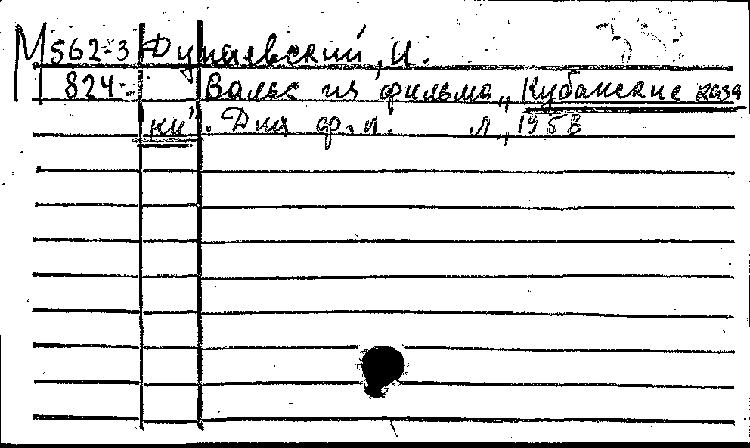 М562-3 Дунаевский, И.
824- Вальс из фильма „Кубанские каза
ки". Для ф.п. Л., 1958